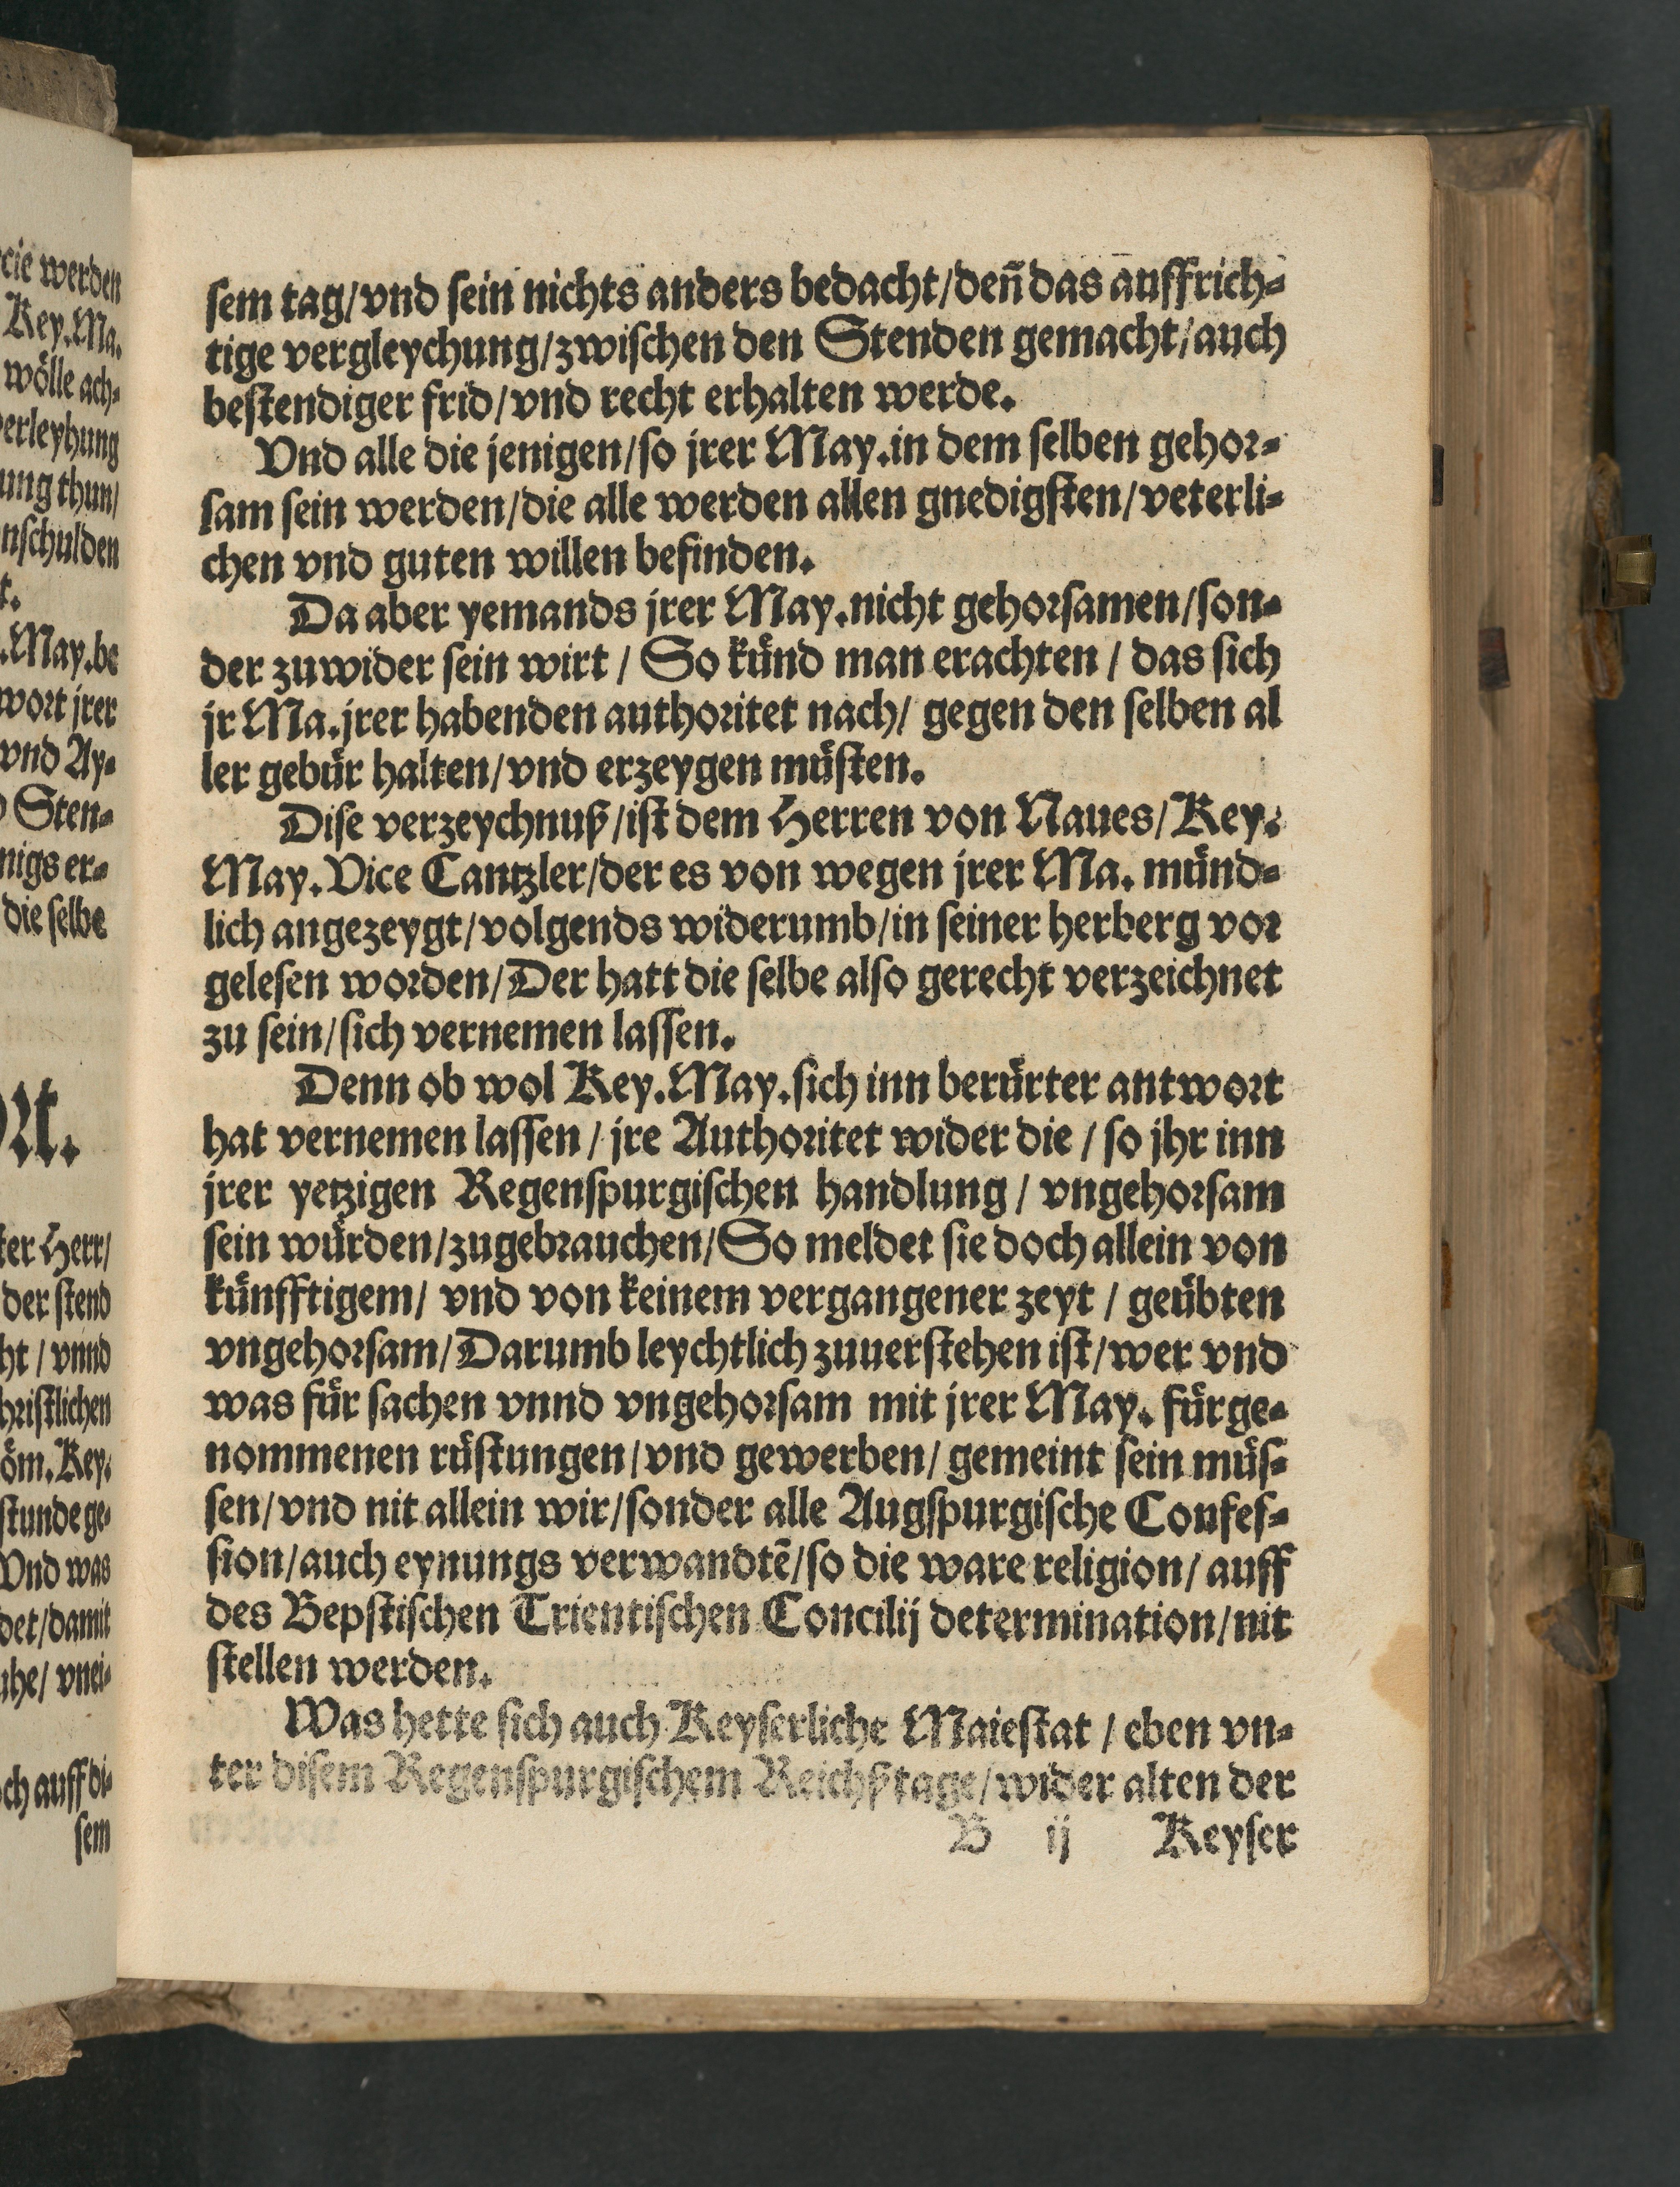 sem tag/vnd sein nichts anders bedacht/deñ das auffrich⸗
tige vergleychung/zwischen den Stenden gemacht/auch
bestendiger frid/vnd recht erhalten werde.
Vnd alle die jenigen/so jrer May.in dem selben gehor⸗
sam sein werden/die alle werden allen gnedigsten/veterli⸗
chen vnd guten willen befinden.
Da aber yemands jrer May.nicht gehorsamen/son⸗
der zuwider sein wirt / So künd man erachten / das sich
jr Ma.jrer habenden authoritet nach/ gegen den selben al
ler gebür halten/vnd erzeygen müsten.
Dise verzeychnuß/ist dem Herren von Naues/Key.
May. Vice Cantzler/der es von wegen jrer Ma. münd⸗
lich angezeygt/volgends widerumb/in seiner herberg vor
gelesen worden/Der hatt die selbe also gerecht verzeichnet
zu sein/sich vernemen lassen.
Denn ob wol Key.May.sich inn berürter antwort
hat vernemen lassen / jre Authoritet wider die / so jhr inn
jrer yetzigen Regenspurgischen handlung / vngehorsam
sein würden/zugebrauchen/So meldet sie doch allein von
künfftigem/ vnd von keinem vergangener zeyt / geübten
vngehorsam/Darumb leychtlich zuuerstehen ist/wer vnd
was für sachen vnnd vngehorsam mit jrer May. fürge⸗
nommenen rüstungen/vnd gewerben/ gemeint sein müs⸗
sen/vnd nit allein wir/sonder alle Augspurgische Confes⸗
sion/auch eynungs verwandtē/so die ware religion/ auff
des Bepstischen Trientischen Concilij determination/nit
stellen werden.
Was hette sich auch Keyserliche Maiestat / eben vn⸗
ter disem Regenspurgischem Reichßtage/wider alten der
B ij Keyser
werden
Key.Ma.
wölle ach⸗
erleyhung
ung thun/
nschulden
May.be
wort jrer
vnd Ay⸗
Sten⸗
nigs er⸗
die selbe
ter Herr/
der stend
ht / vnnd
hristlichen
öm. Key.
stunde ge⸗
Vnd was
det/damit
uhe/ vnei⸗
ch auff di⸗
sem